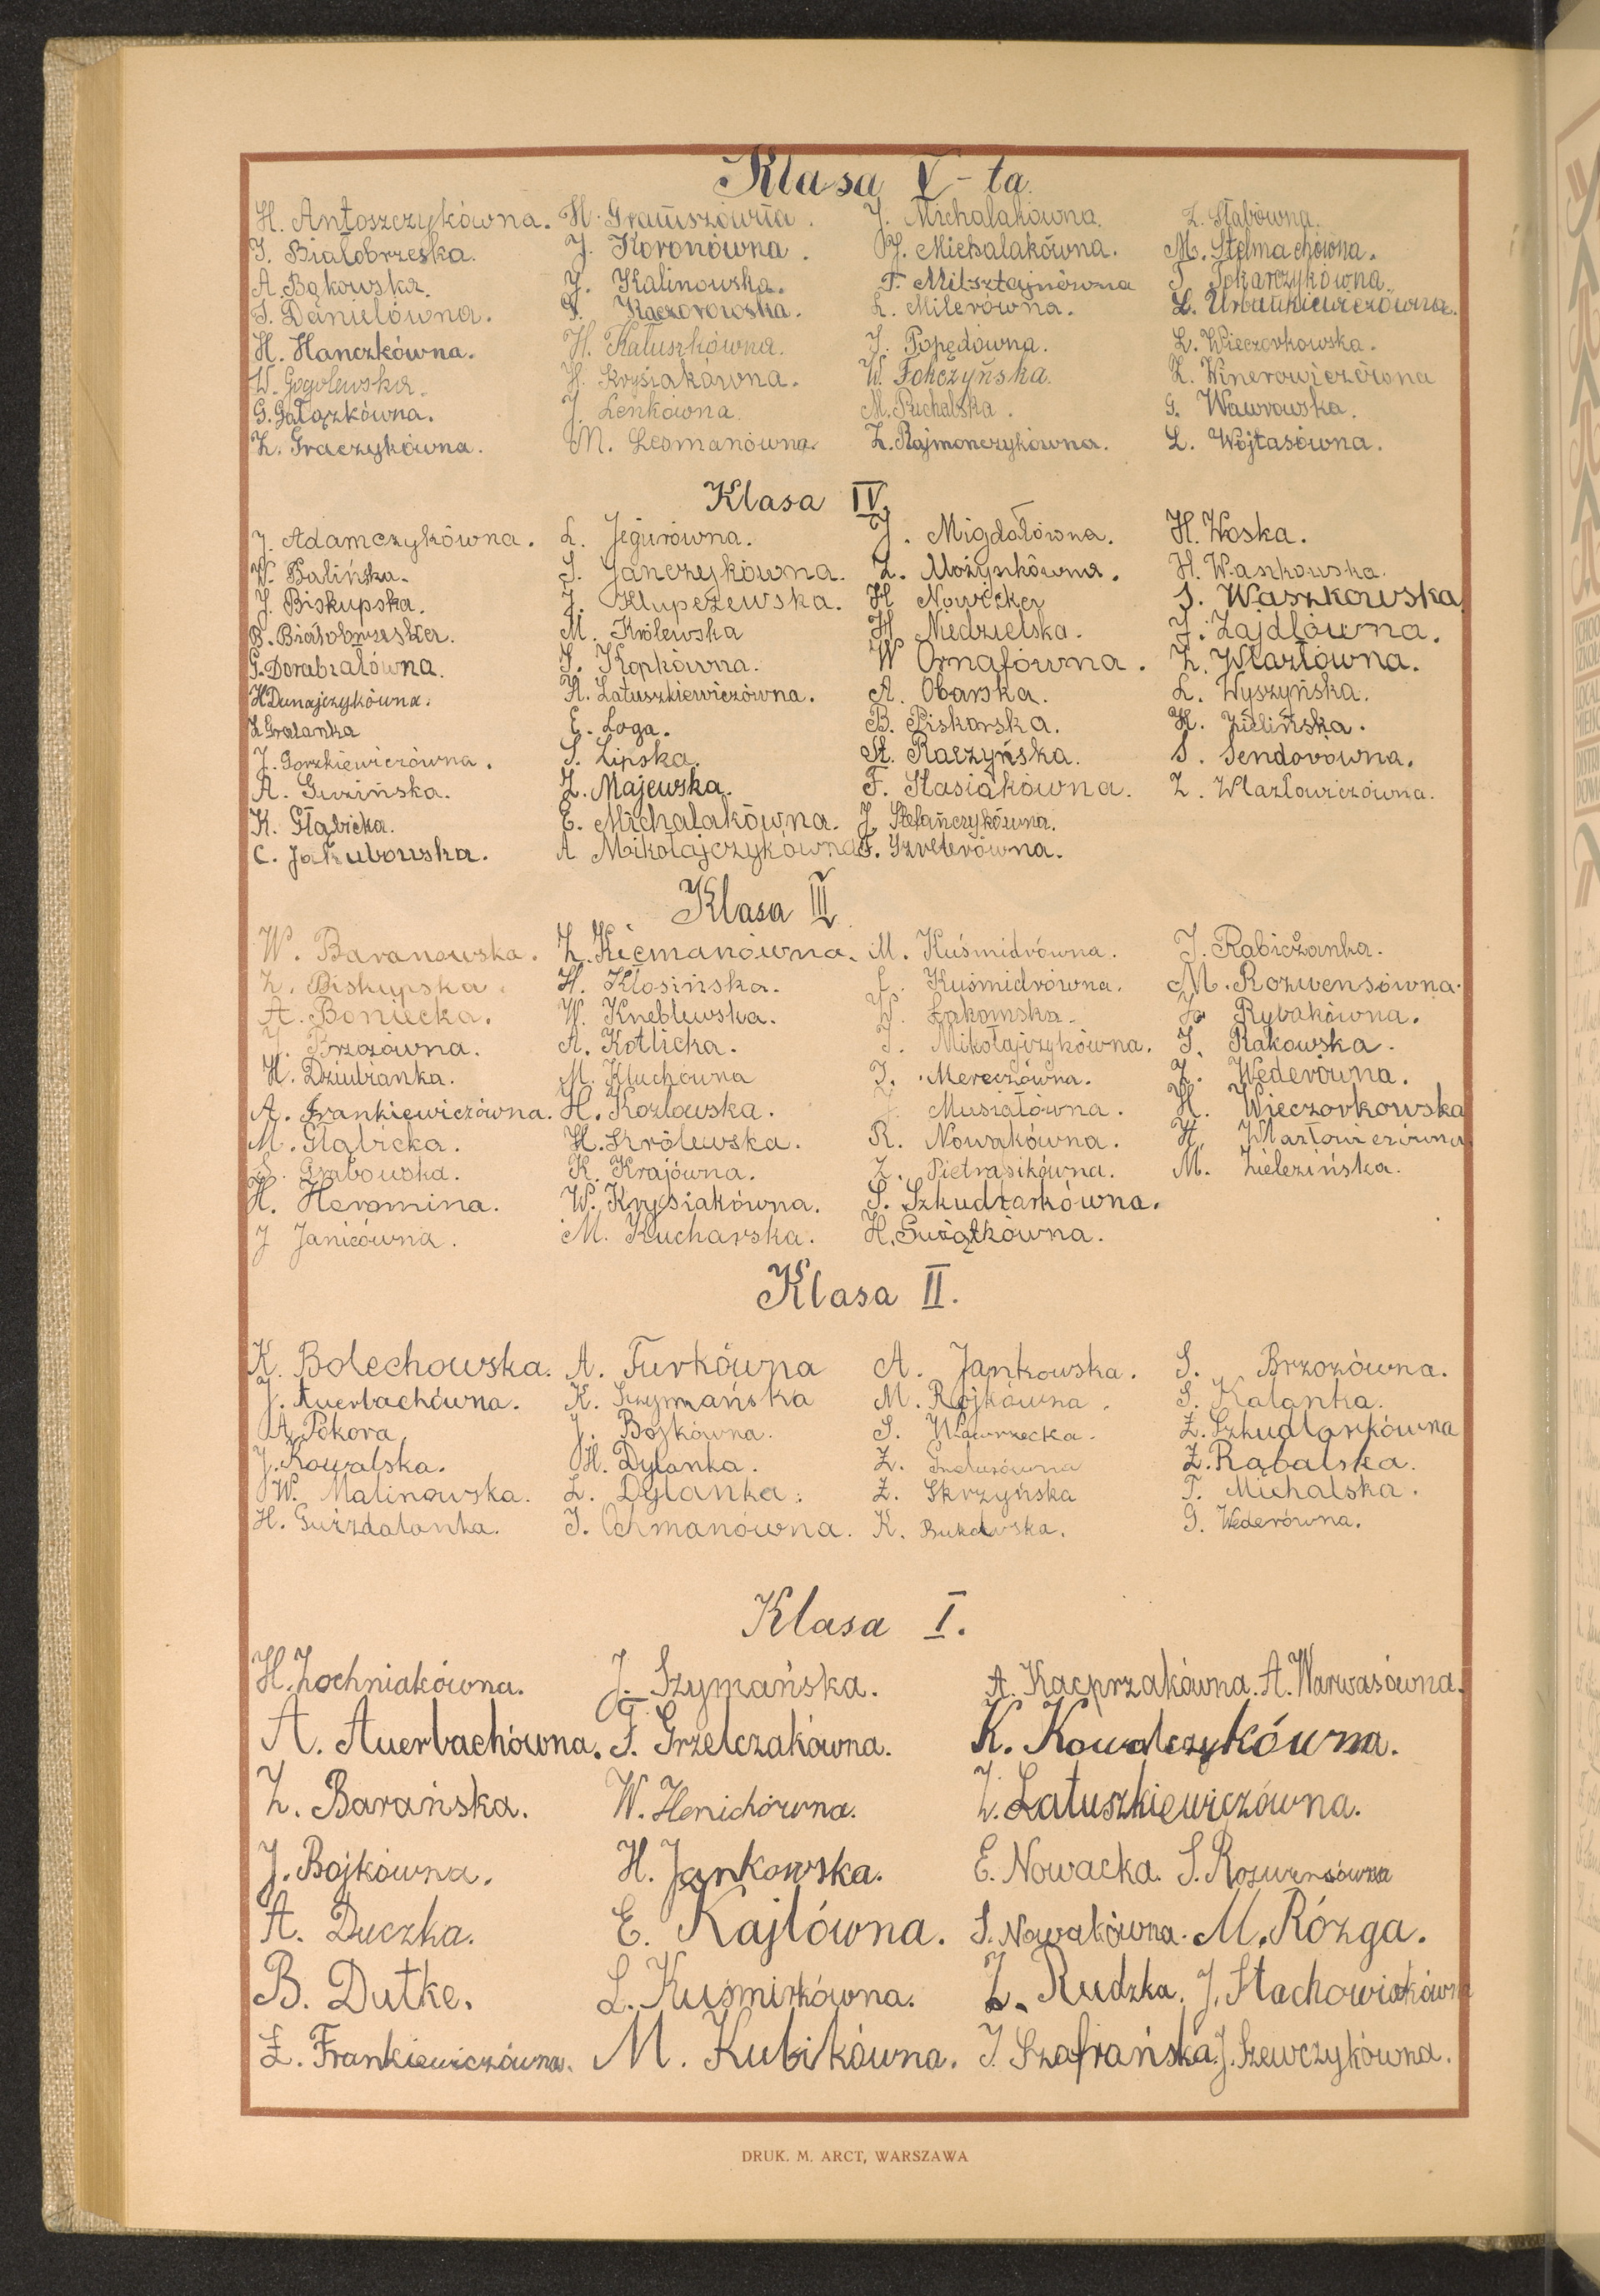 Klasa V-ta
H. Antoszczykówna. H. Gramszówna. J. Michalakówna. Z. Słabówna.
S. Białobrzeska. J. Koronówna. J. Michalakówna. M. Stelmachówna.
A. Bąkowska. J. Kalinowska. F. Milsztajnówna T. Tokarczykówna.
S. Danielówna. S. Kaczorowska. L. Milerówna. L. Urbankiewiczówna.
H. Hanczkówna. H. Kałuszkówna. J. Popędówna. L. Wieczorkowska.
W. Gogolewska. H. Kryśiakówna. W. Fokczyńska. Z. Winerowiczówna
G. Gałązkówna. J. Lenkówna. M. Puchalska. G. Wawrowska.
Z. Graczykówna. M. Lesmanówna. Z. Rajmonczykówna. L. Wójtasówna.
Klasa IV.
J. Adamczykówna. L. Jegurówna. J. Migdałówna. H. Woska.
W. Balińska. S. Janczykówna. Z. Możynkówna. H. Waszkowska.
J. Biskupska. J. Klupczewska. H Nowicka S. Waszkowska
B. Białobrzeska. M. Królewska H Niedzielska. J. Zajdlówna.
G. Dorabiałówna. S. Kopkówna. W Ornafówna. Z. Wlazłówna.
H Dunajczykówna. H. Latuszkiewiczówna. A. Obarska. L. Wyszyńska.
Z Gralanka E. Loga. B. Piskorska. H. Zielińska.
J. Gorzkiewiczówna. S. Lipska. St. Raczyńska. S. Sendorowna.
A. Guzińska. Z. Majewska. F. Stasiakówna. Z. Wlazłowiczówna.
K. Głąbicka. E. Michalakówna. J. Stefańczykówna.
C. Jakubowska. A Mikołajczykówna F. Szreterówna.
Klasa III
W. Baranowska. Z. Kiemanówna. M. Kuśmidrówna. J. Rabiczanka.
Z. Biskupska. H. Kłosińska. Kuśmidrówna. M. Rozwensówna.
A. Boniecka. W. Kneblewska. W. Łakomska. Rybakówna.
J. Brzozówna. A. Kotlicka. J. Mikołajczykówna. J. Rakowska.
H. Dziubianka. M. Kluchówna J. Mereczówna. Z. Wederówna.
A. Frankiewiczówna. H. Kozlowska. J. Musiałówna. H. Wieczorkowska
M. Głąbicka. H. Królewska. R. Nowakówna. H. Wlazłowiczówna
S. Grabowska. K. Krajówna. Z. Pietrasikówna. M. Zielezińska.
H. Heromina. W. Krysiakówna. S. Szkudlarkówna.
J Janicówna. M. Kucharska. H. Swiątkówna.
Klasa II.
K. Bolechowska. A. Turkówna A. Jankowska. S. Brzozówna.
J. Auerbachówna. K. Szymańska M. Rojkówna. S. Kalanka.
A. Pokora J. Bojkówna. S. Wawrzecka. Z. Szkudlarkówna
J. Kowalska. H. Dylanka. Z. Z. Rąbalska.
W. Malinowska. L. Dylanka. Z. Skrzyńska T. Michalska.
H. Guizdalanka. J. Ochmanówna. K. Bukowska. G. Wederówna.
Klasa I.
H. Zochniakówna. J. Szymańska. A. Kacprzakówna. A. Warwasówna.
A. Auerbachówna. F. Grzelczakówna. K. Kowalczykówna.
Z. Barańska. W. Henichówna. Z. Latuszkiewiczówna.
J. Bojkówna. H. Jankowska. E. Nowacka. S. Rozwensówna
A. Duczka. E. Kajlówna. S. Nowakówna. M. Rózga.
B. Dutke. L. Kuśmirkówna. Z. Rudzka. J. Stachowiakówna
Z. Frankiewiczówna. M. Kubikówna. J. Szafrańska. J. Szewczykówna.
DRUK. M. ARCT, WARSZAWA